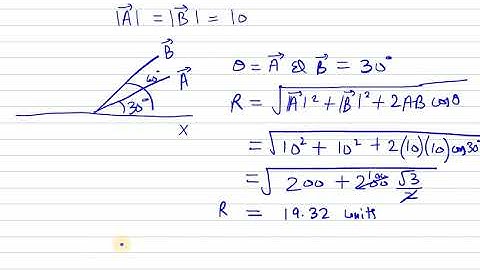 |A⃗| = |B⃗| = 10
B⃗
60°
A⃗
30°
X
θ = A⃗ & B⃗ = 30°
R = √|A⃗|² + |B⃗|² + 2AB cosθ
= √10² + 10² + 2(10)(10) cos30°
= √200 + 2100 √3/2
R = 19.32 units